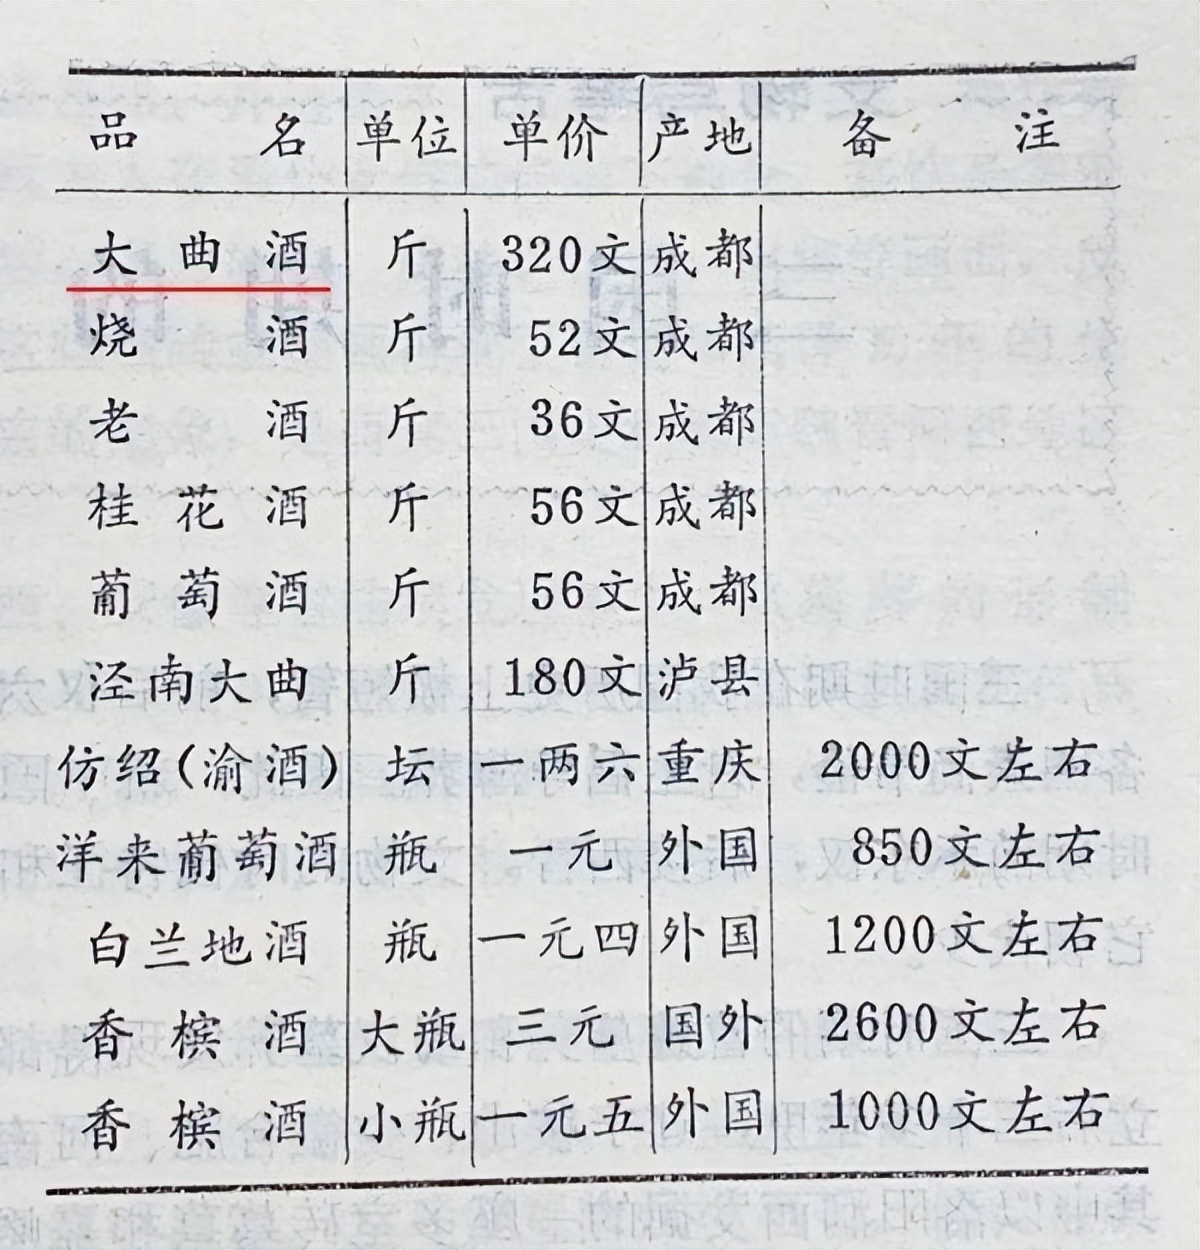 品名 单位 单价 产地 备注
大曲酒 斤 320文 成都
烧酒 斤 52文 成都
老酒 斤 36文 成都
桂花酒 斤 56文 成都
葡萄酒 斤 56文 成都
泾南大曲 斤 180文 泸县
仿绍(渝酒) 坛 一两六 重庆 2000文左右
洋来葡萄酒 瓶 一元 外国 850文左右
白兰地酒 瓶 一元四 外国 1200文左右
香槟酒 大瓶 三元 国外 2600文左右
香槟酒 小瓶 一元五 外国 1000文左右